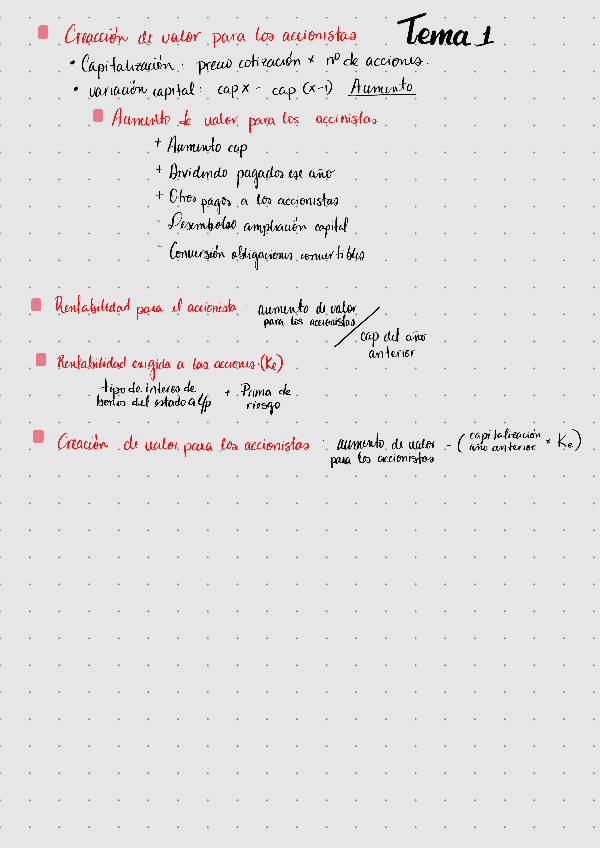 Creacción de valor para los accionistas
Tema 1
• Capitalización: precio cotización × nº de acciones.
• variación capital: cap x - cap (x-1) Aumento
Aumento de valor para los accinistas
+ Aumento cap
+ Dividendo pagados ese año
+ Otros pagos a los accionistas
- Desembolso ampliación capital
- Conversión obligaciones convertibles
Rentabilidad para el accionista: aumento de valor
para los accionistas /
cap del año
anterior
Rentabilidad exigida a las acciones (Ke)
tipo de interes de
bonos del estado a l/p + Prima de
riesgo
Creación de valor para los accionistas : aumento de valor
para los accionistas - (capitalización
año anterior × Ke)